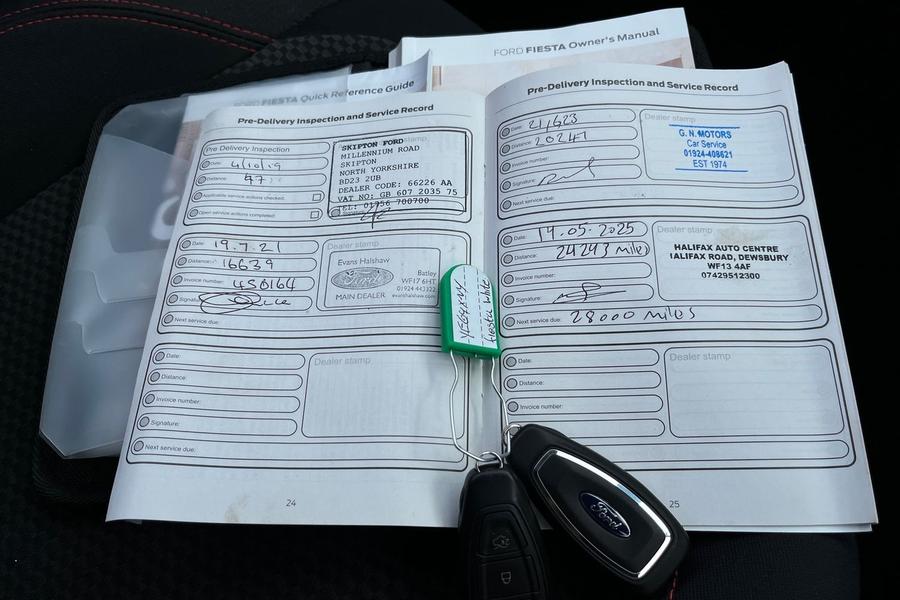 FORD FIESTA Owner's Manual
FORD FIESTA Quick Reference Guide
Pre-Delivery Inspection and Service Record
Pre Delivery Inspection
Date: 4/10/19
Distance: 47
Applicable service actions checked:
Open service actions completed:
SKIPTON FORD
MILLENNIUM ROAD
SKIPTON
NORTH YORKSHIRE
BD23 2UB
DEALER CODE: 66226 AA
VAT NO: GB 607 2035 75
TEL: 01756 700700
Date: 19.7.21
Distance: 16639
Invoice number: 450164
Signature:
Next service due:
Dealer stamp
Evans Halshaw
Ford
MAIN DEALER
Batley
WF17 6HT
01924 443322
evanshalshaw.com
Date:
Distance:
Invoice number:
Signature:
Next service due:
Dealer stamp
24
Pre-Delivery Inspection and Service Record
Date: 21/623
Distance: 20247
Invoice number:
Signature:
Next service due:
Dealer stamp
G.N. MOTORS
Car Service
01924-408621
EST 1974
Date: 14.05.2025
Distance: 24293 miles
Invoice number:
Signature:
Next service due: 28000 MILES
Dealer stamp
HALIFAX AUTO CENTRE
HALIFAX ROAD, DEWSBURY
WF13 4AF
07429512300
Date:
Distance:
Invoice number:
Signature:
Next service due:
Dealer stamp
25
fiesta
Ford